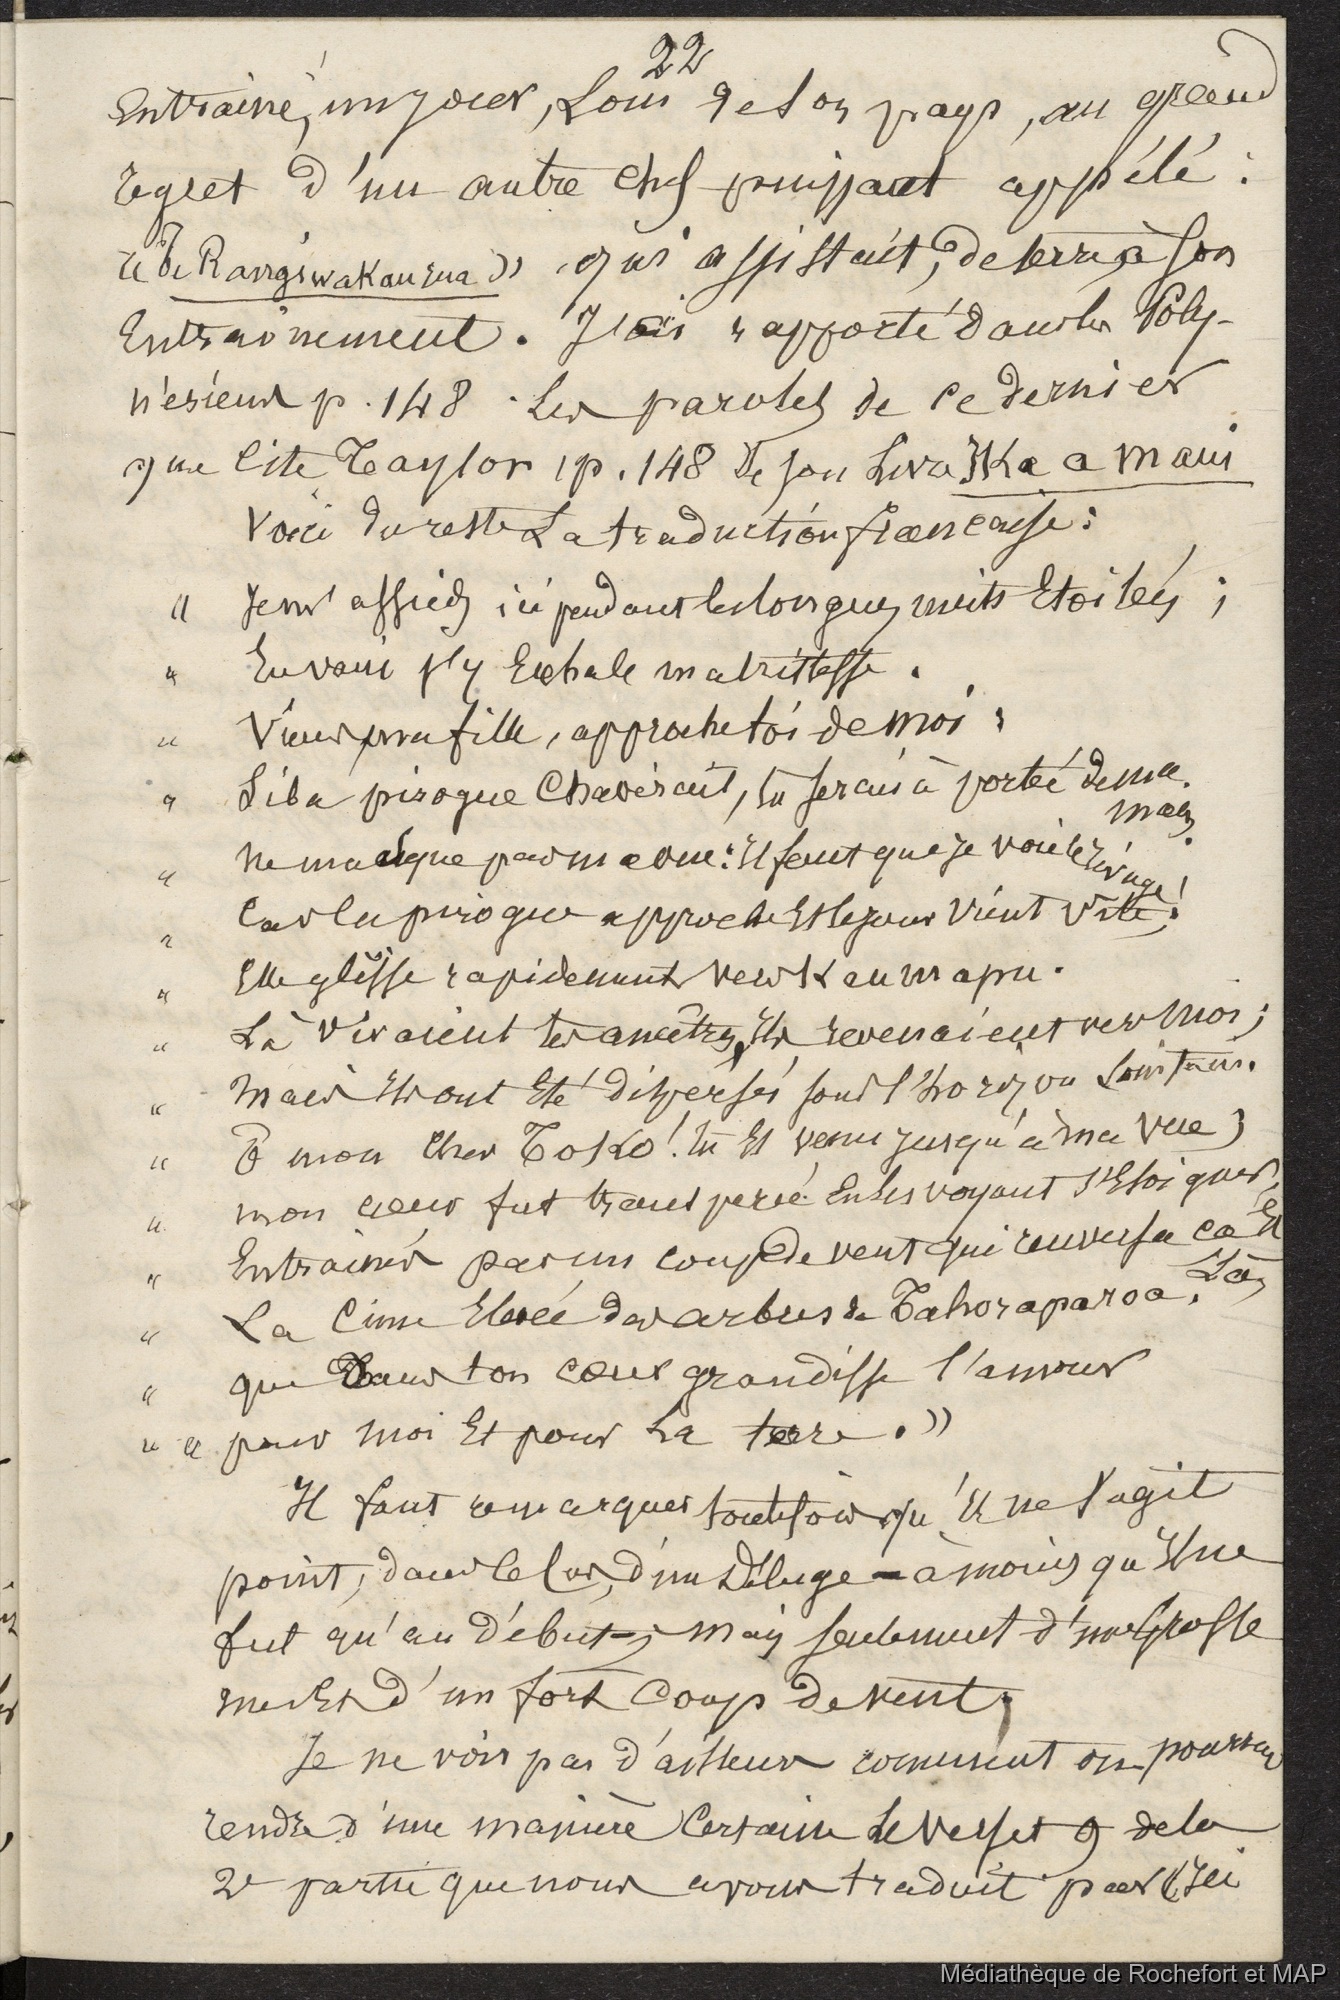 22
Entrainé, un jour, loin de son pays, au grand
regret d'un autre chef puissant appélé :
« Te Rangiwakaurua » qui assistait, de terre, à son
Entrainement. J'ai rapporté dans les Poly-
nésiens p. 148 les paroles de ce dernier
que cite Taylor, p. 148 de son livre Ika a Maui
Voici du reste la traduction francaise :
" Je m'assieds ici pendant les longues nuits Etoilées ;
" En vain j'y Exhale ma tristesse .
" Viens, ma fille, approche toi de moi ;
" Si la pirogue Chavirait, tu serais à portée de ma
main.
" Ne masque pas ma vue : il faut que je voie le rivage !
" Car la pirogue approche Et le jour vient vite !
" Elle glisse rapidement vers Kaumapu.
" Là vivaient tes ancêtres, Ils revenaient vers moi ;
" Mais Ils ont Eté dispersés sous l'horizon lointain.
" O mon cher Toko ! tu Es venu jusqu'à ma vue ;
" mon coeur fut transpercé En les voyant s'Eloigner,
" Entrainés par un coup de vent qui renversa ça Et
Là,
" La Cime Elevée des arbres de Tahoraparoa.
" que dans ton coeur grandisse l'amour
" " pour moi Et pour la terre . »
Il faut remarquer toutefois qu'il ne s'agit
point, dans ce cas, d'un Déluge - à moins qu'il ne
fut qu'au début -, mais seulement d'une grosse
mer Et d'un fort coup de vent,
Je ne vois pas d'ailleurs comment on pourrait
rendre d'une manière Certaine le verset 9 de la
2e partie que nous avons traduit par « Ici
Médiathèque de Rochefort et MAP